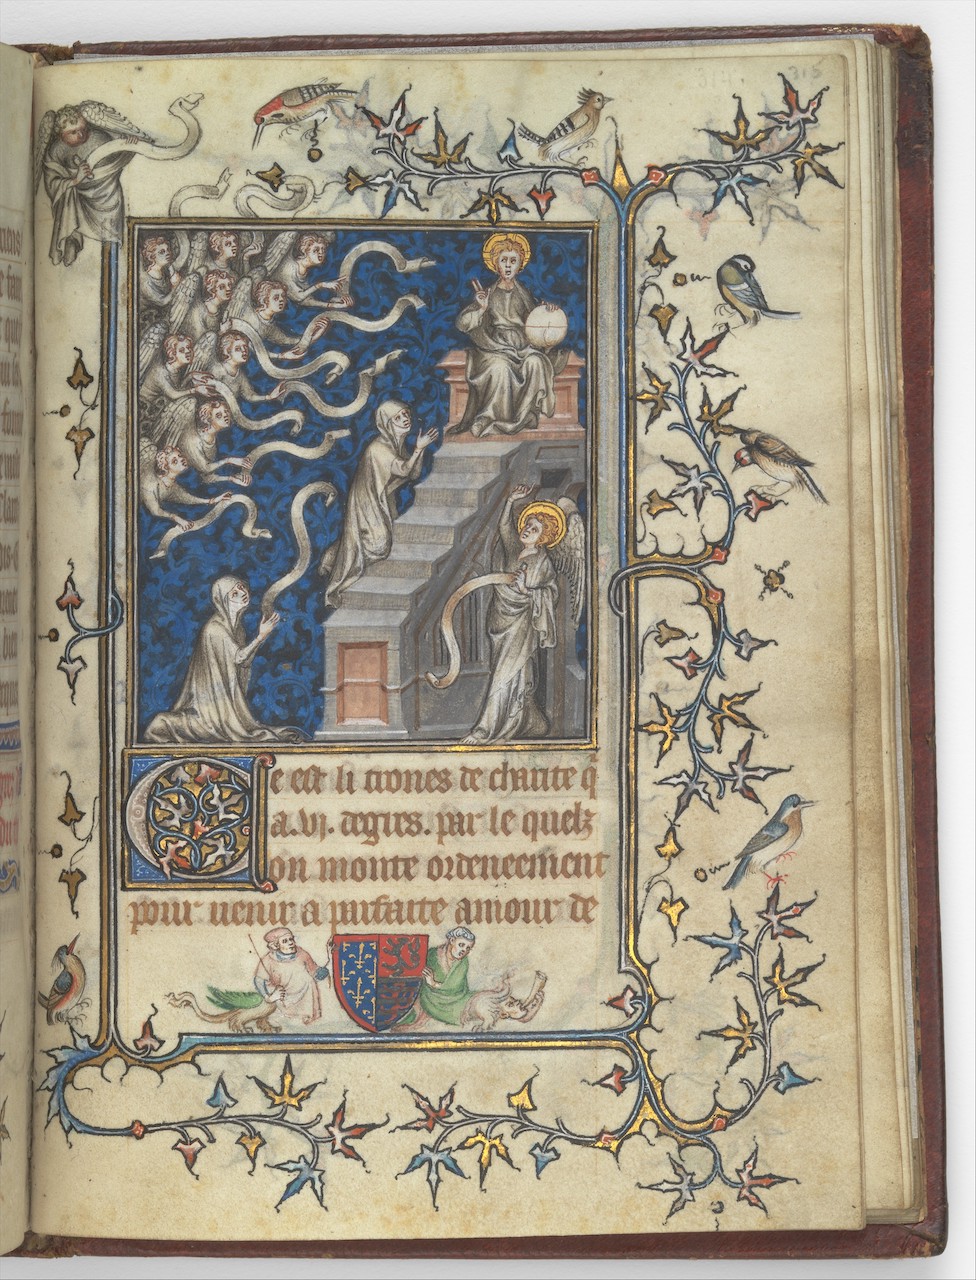 Ce est li trones de charite q̄
a .vi. degres. par le quelz
on monte ordeneement
pour uenir a parfaite amour de
315